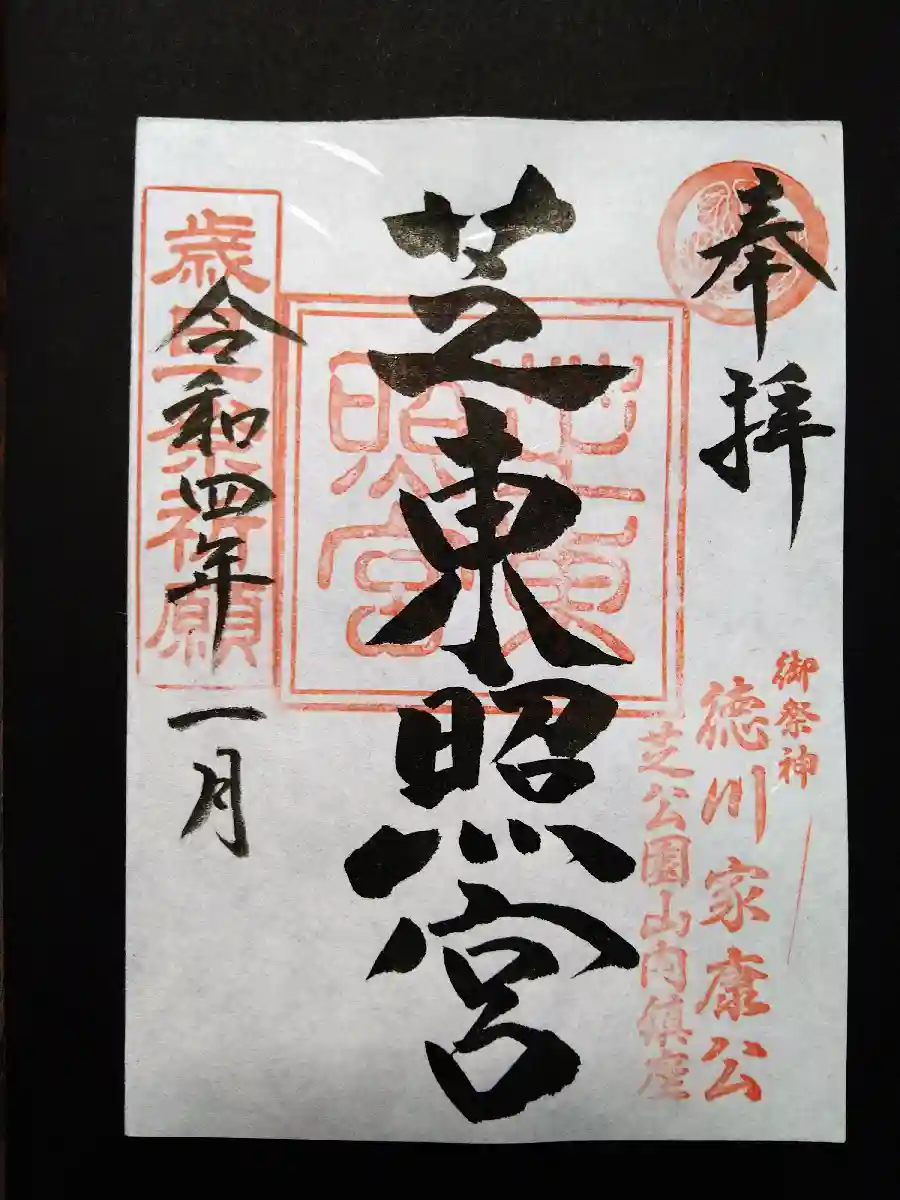 奉拝
御祭神
徳川家康公
芝公園山内鎮座
芝東照宮
芝東照宮
令和四年一月
歳旦祭祈願